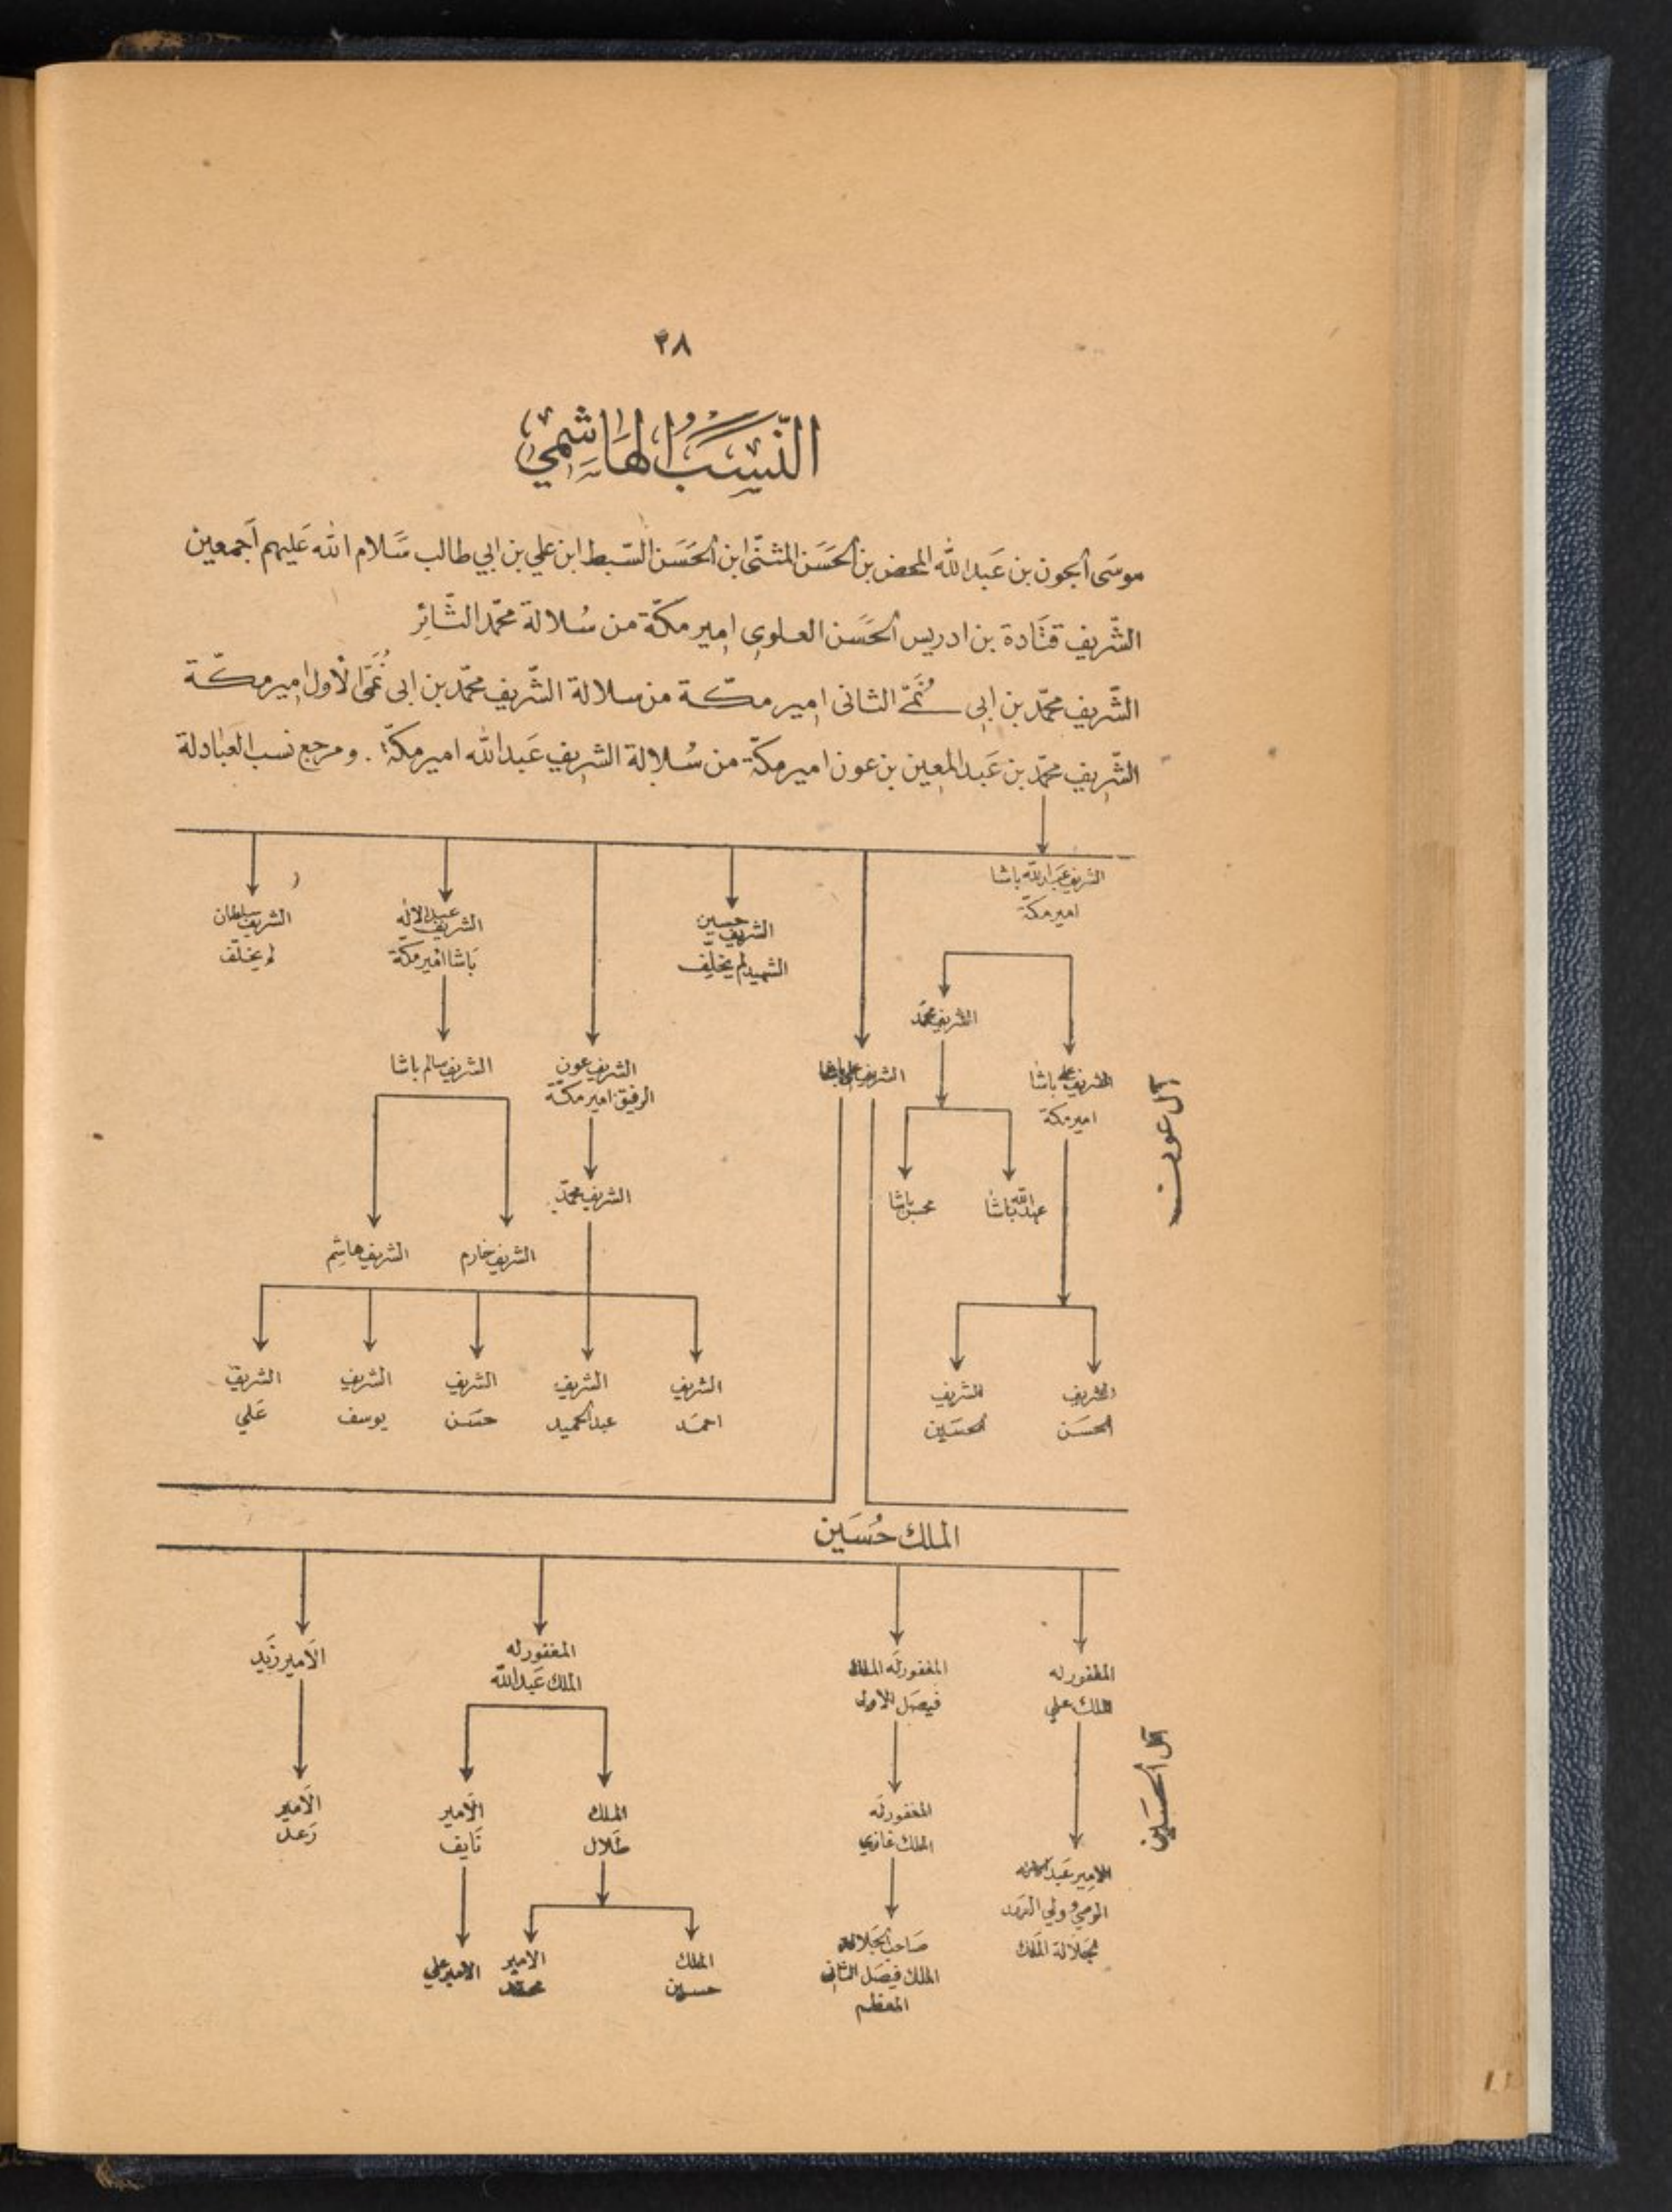 ٣٨
النَّسَبُ الهَاشِمِيّ
موسَى الجون بن عَبد الله المحض بن الحَسَن المثنّى ابن الحَسَن السّبط ابن علي بن ابي طالب سَلام الله عَليهم اجمعين
الشّريف قتَادة بن ادريس الحَسَن العلوي امير مكّة من سُلالة محمّد الثّائِر
الشّريف محمّد بن ابي نُمَيّ الثاني امير مكّة من سلالة الشّريف محمّد بن ابي نُمَيّ الأول امير مكّة
الشّريف محمّد بن عَبد المعين بن عون امير مكّة من سُلالة الشريف عَبد الله امير مكّة . ومرجع نسب العبَادلة
الشريف عَبد الله باشا
امير مكة
الشريف حسين
الشهيد لم يخلّف
الشريف عبد الاله
باشا امير مكّة
الشريف سلطان
لم يخلّف
آل عون
الشريف محمّد
الشريف علي باشا
امير مكة
الشريف علي باشا
الشريف عون
الرفيق امير مكّة
الشريف سالم باشا
عبد الله باشا
محسن باشا
الشريف محمّد
الشريف خارم
الشريف هاشِم
الشريف
الحسَن
الشريف
الحسَين
الشريف
احمَد
الشريف
عبد الحميد
الشريف
حسَن
الشريف
يوسف
الشريف
عَلي
الملك حُسَين
آل الحسَين
المغفور له
الملك علي
المغفور له الملك
فيصَل الاول
المغفور له
الملك عَبد الله
الأمير زَيد
الامير عَبد الاله
الوصي وولي العهد
لجَلالة الملك
المغفور له
الملك غازي
الملك
طَلال
الأمير
نَايف
الأمير
رَعد
صَاحب الجَلالة
الملك فيصَل الثاني
المعظم
الملك
حسين
الامير
محمّد
الامير علي